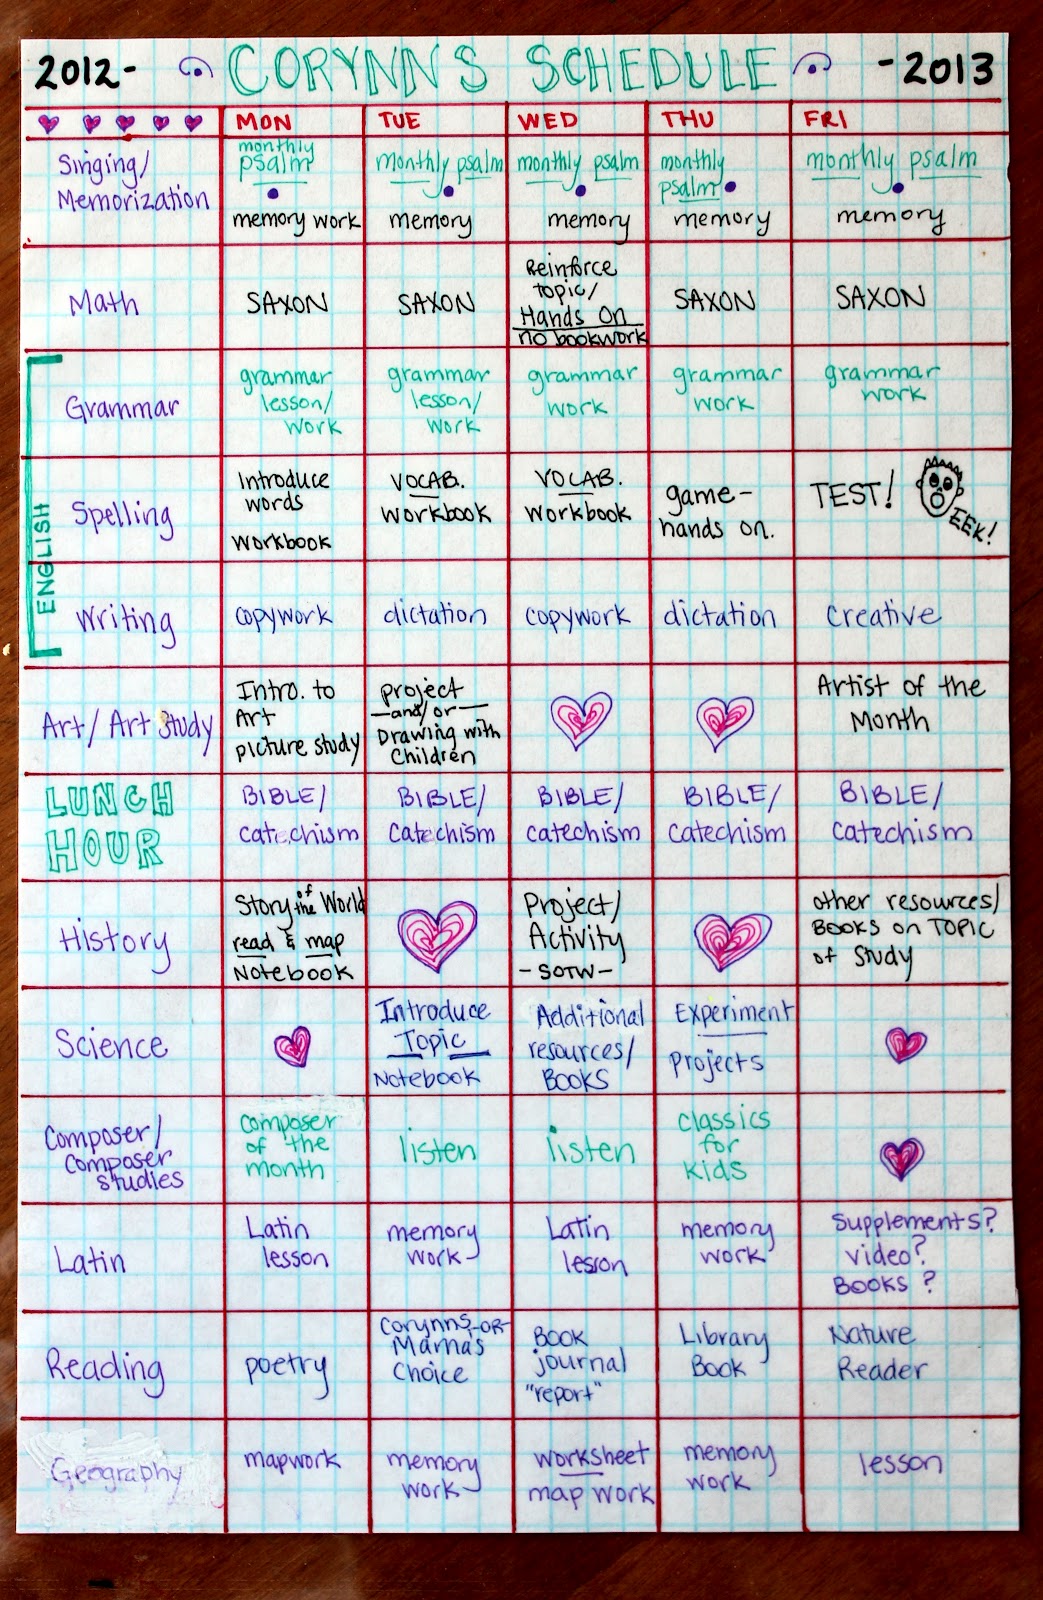 2012- CORYNN'S SCHEDULE -2013
MON TUE WED THU FRI
Singing/
Memorization
monthly
psalm
memory work
monthly psalm
memory
monthly psalm
memory
monthly
psalm
memory
monthly psalm
memory
Math
SAXON
SAXON
Reinforce
topic/
Hands On
no bookwork
SAXON
SAXON
ENGLISH
Grammar
grammar
lesson/
work
grammar
lesson/
work
grammar
work
grammar
work
grammar
work
Spelling
Introduce
words
workbook
VOCAB.
workbook
VOCAB.
workbook
game-
hands on.
TEST!
EEK!
Writing
copywork
dictation
copywork
dictation
creative
Art/ Art Study
Intro. to
Art
picture study
project
—and/or—
Drawing with
Children
Artist of the
Month
LUNCH
HOUR
BIBLE/
catechism
BIBLE/
catechism
BIBLE/
catechism
BIBLE/
catechism
BIBLE/
catechism
History
Story of the World
read & map
Notebook
Project/
Activity
-SOTW-
other resources/
BOOKS on TOPIC
of Study
Science
Introduce
Topic
Notebook
Additional
resources/
BOOKS
Experiment
projects
Composer/
composer
studies
composer
of the
month
listen
listen
classics
for
kids
Latin
Latin
lesson
memory
work
Latin
lesson
memory
work
Supplements?
video?
BOOKS?
Reading
poetry
Corynns-OR-
Mamas
Choice
BOOK
journal
"report"
Library
Book
Nature
Reader
Geography
mapwork
memory
work
worksheet
map work
memory
work
lesson